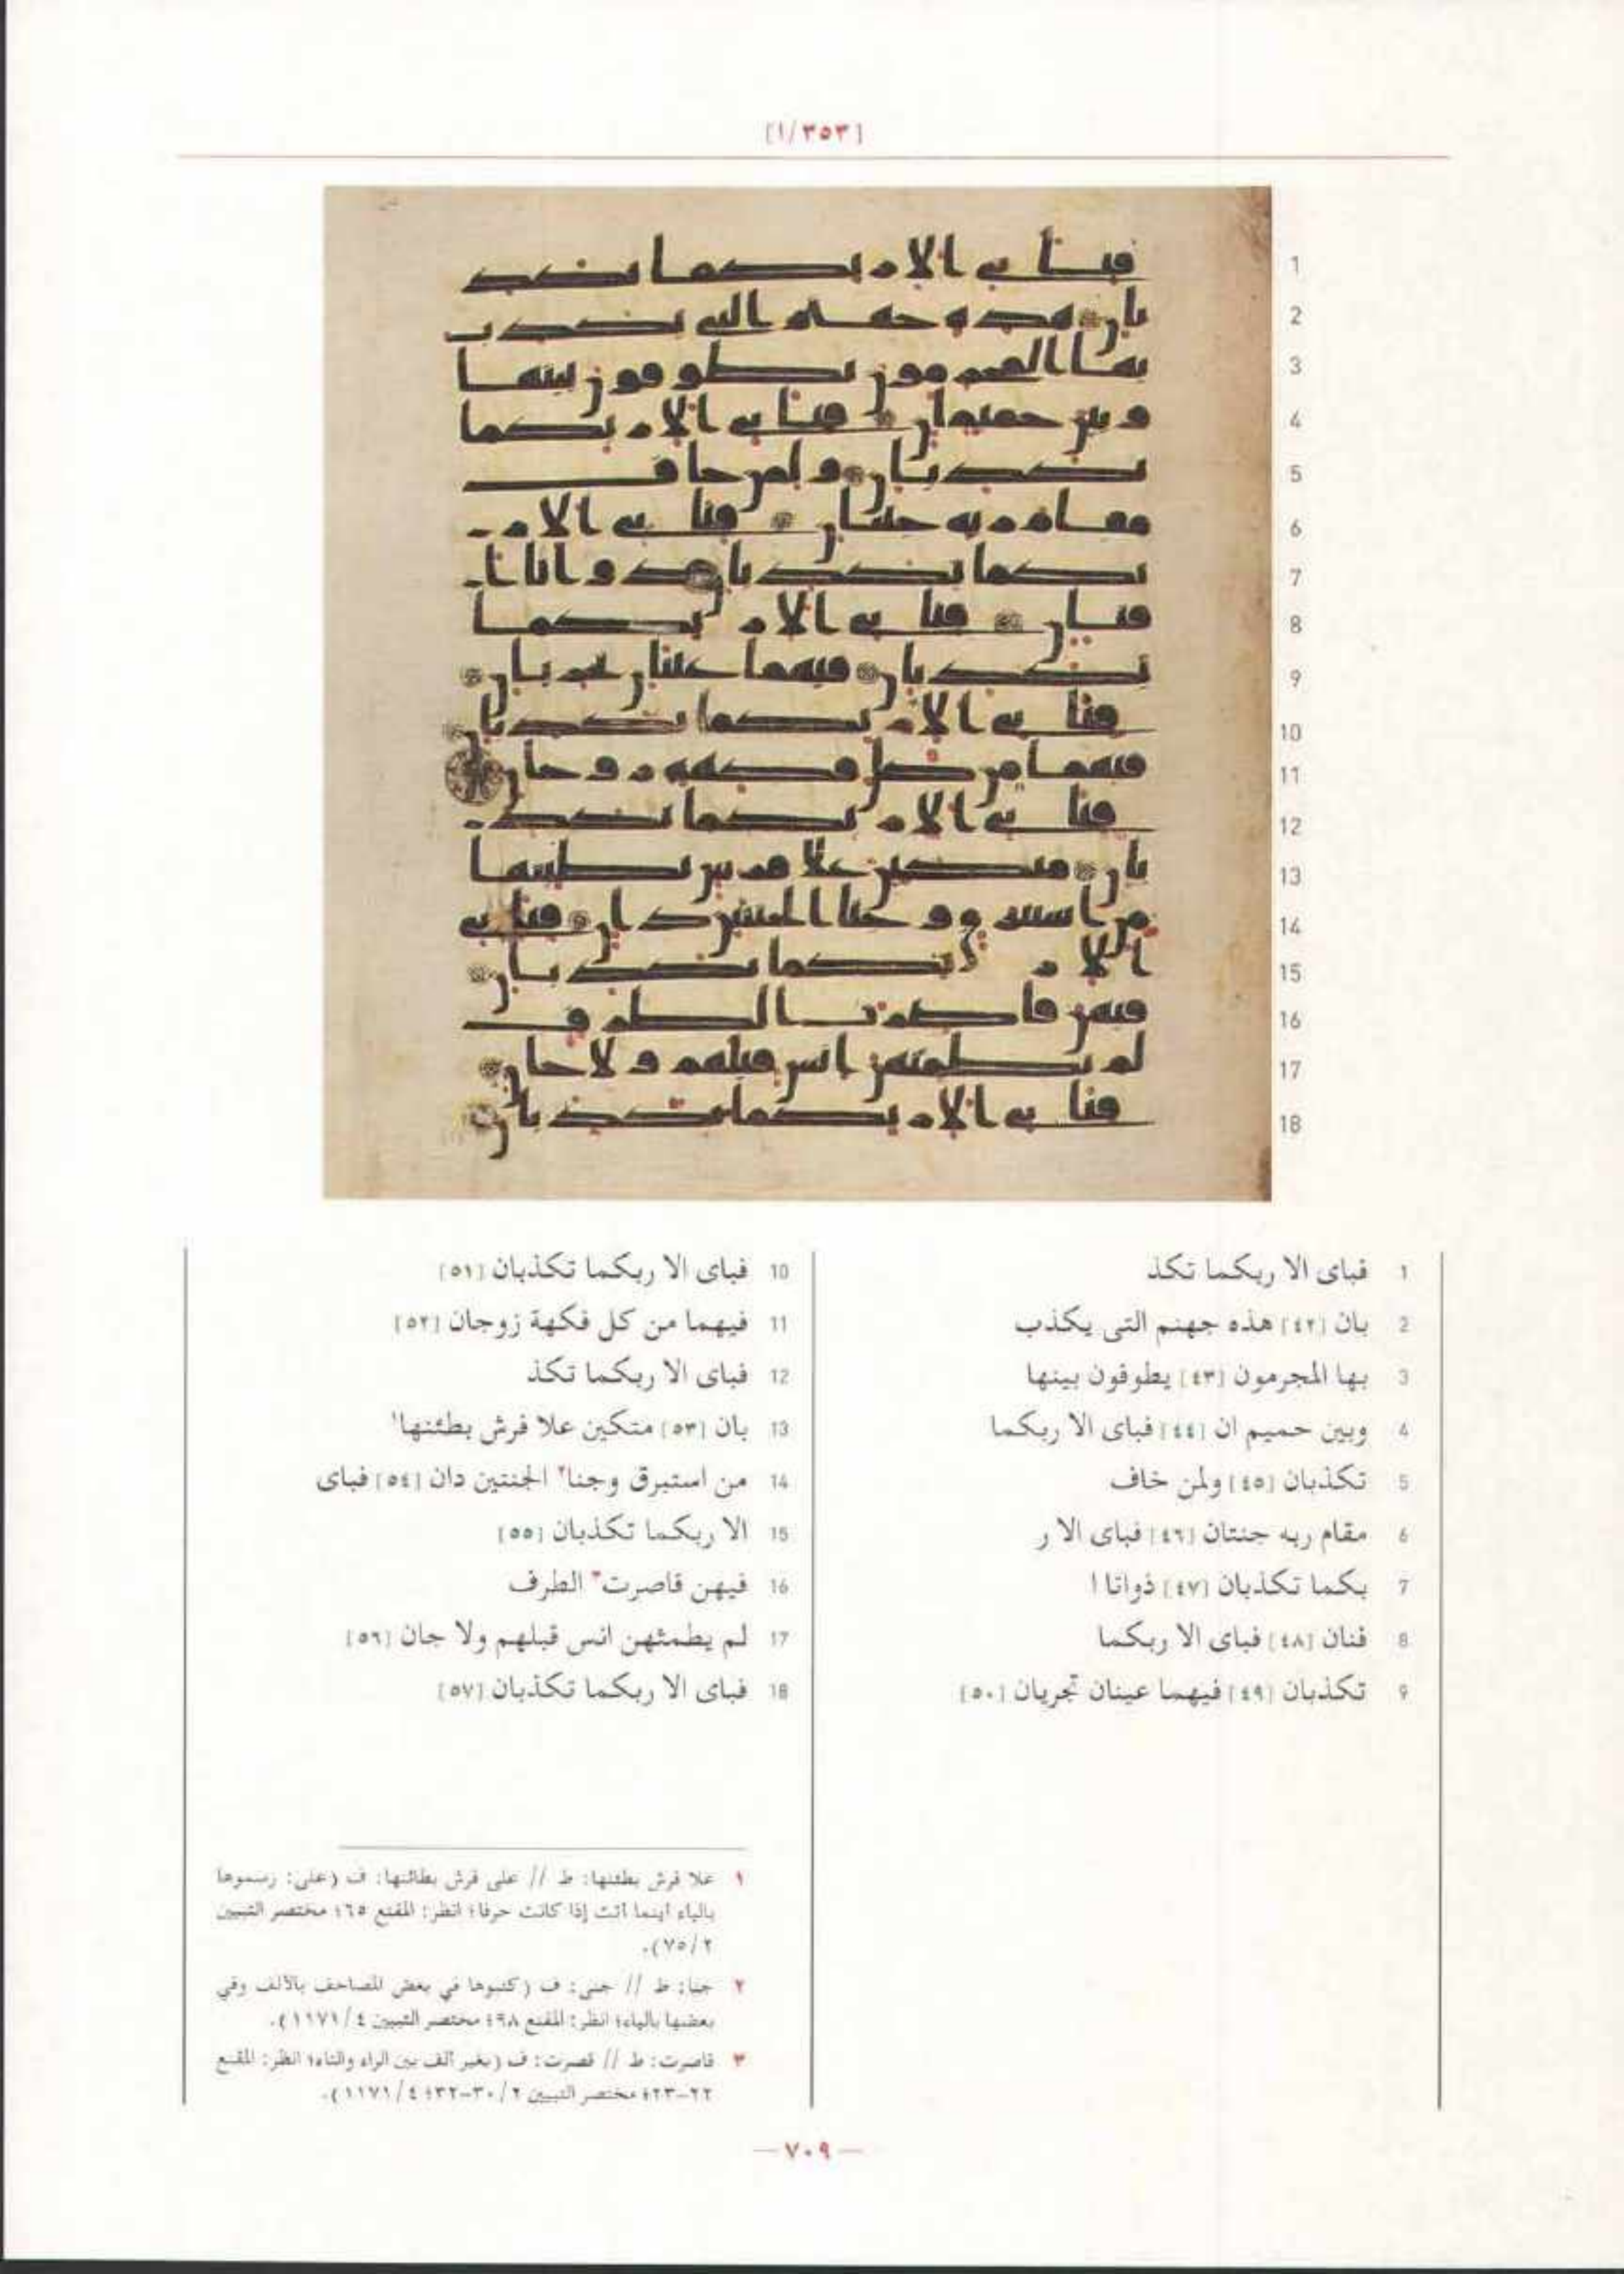 [٣٥٣/١]
1
2
3
4
5
6
7
8
9
10
11
12
13
14
15
16
17
18
1 فباى الا ربكما تكذ
2 بان [٤٢] هذه جهنم التى يكذب
3 بها المجرمون [٤٣] يطوفون بينها
4 وبين حميم ان [٤٤] فباى الا ربكما
5 تكذبان [٤٥] ولمن خاف
6 مقام ربه جنتان [٤٦] فباى الا ر
7 بكما تكذبان [٤٧] ذواتا ا
8 فنان [٤٨] فباى الا ربكما
9 تكذبان [٤٩] فيهما عينان تجريان [٥٠]
10 فباى الا ربكما تكذبان [٥١]
11 فيهما من كل فكهة زوجان [٥٢]
12 فباى الا ربكما تكذ
13 بان [٥٣] متكين علا فرش بطئنها١
14 من استبرق وجنا٢ الجنتين دان [٥٤] فباى
15 الا ربكما تكذبان [٥٥]
16 فيهن قاصرت٣ الطرف
17 لم يطمثهن انس قبلهم ولا جان [٥٦]
18 فباى الا ربكما تكذبان [٥٧]
١ علا فرش بطئنها: ط // على فرش بطائنها: ف (على: رسموها
بالياء اينما أتت إذا كانت حرفا؛ انظر: المقنع ٦٥؛ مختصر التبيين
٧٥/٢).
٢ جنا: ط // جنى: ف (كتبوها في بعض المصاحف بالألف وفي
بعضها بالياء؛ انظر: المقنع ٩٨؛ مختصر التبيين ١١٧١/٤).
٣ قاصرت: ط // قصرت: ف (بغير ألف بين الراء والتاء؛ انظر: المقنع
٢٢-٢٣؛ مختصر التبيين ٣٠/٢-٣٢؛ ١١٧١/٤).
— ٧٠٩ —